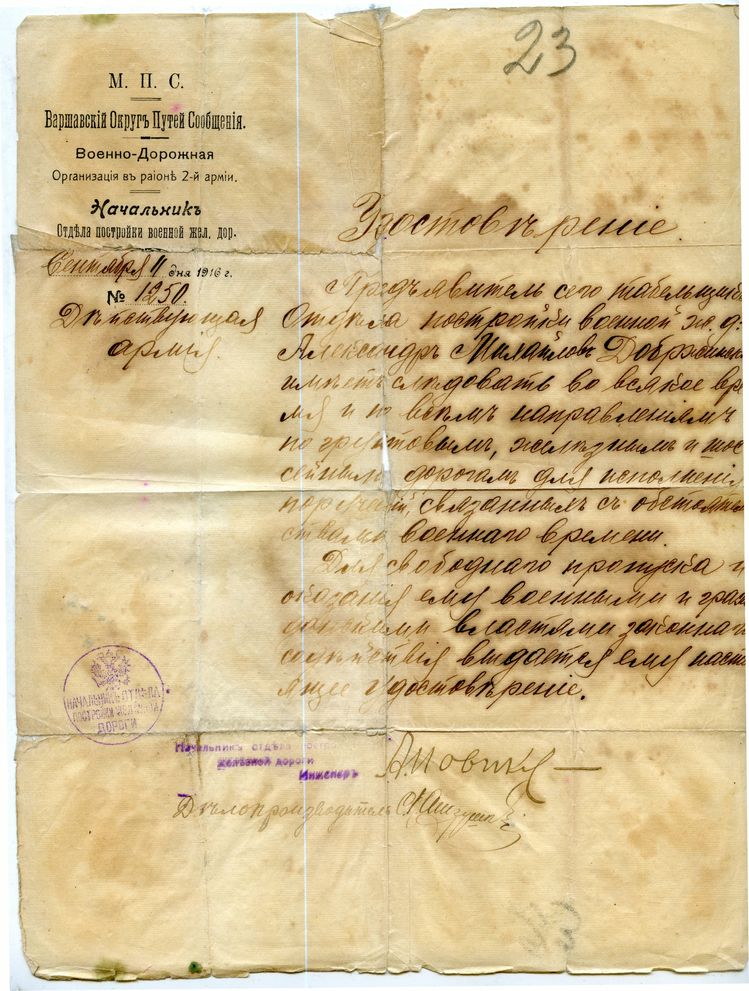 23
М. П. С.
Варшавскій Округъ Путей Сообщенія.
Военно-Дорожная
Организація въ раіонѣ 2-й арміи.
Начальникъ
Отдѣла постройки военной жел. дор.
Сентября 11 дня 1916 г.
№ 1250.
Дѣйствующая
армія.
Удостовѣреніе.
Предъявитель сего табельщикъ
Отдѣла постройки военной ж. д.
Александръ Михайловъ
имѣетъ слѣдовать во всякое вре
мя и по всѣмъ направленіямъ
по грунтовымъ, желѣзнымъ и шос
сейнымъ дорогамъ для исполненія
порученій, связанныхъ съ обстоятель
ствами военнаго времени.
Для свободнаго пропуска и
оказанія ему военными и граж
данскими властями законнаго
содѣйствія выдается ему насто
ящее удостовѣреніе.
НАЧАЛЬНИКЪ ОТДѢЛА
ПОСТРОЙКИ ЖЕЛѢЗНОЙ
ДОРОГИ
Начальникъ отдѣла
желѣзной дороги
Инженеръ
Дѣлопроизводитель